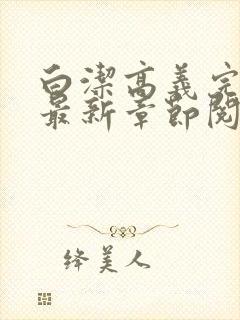 白潔高義完
最新章節閱
绛美人